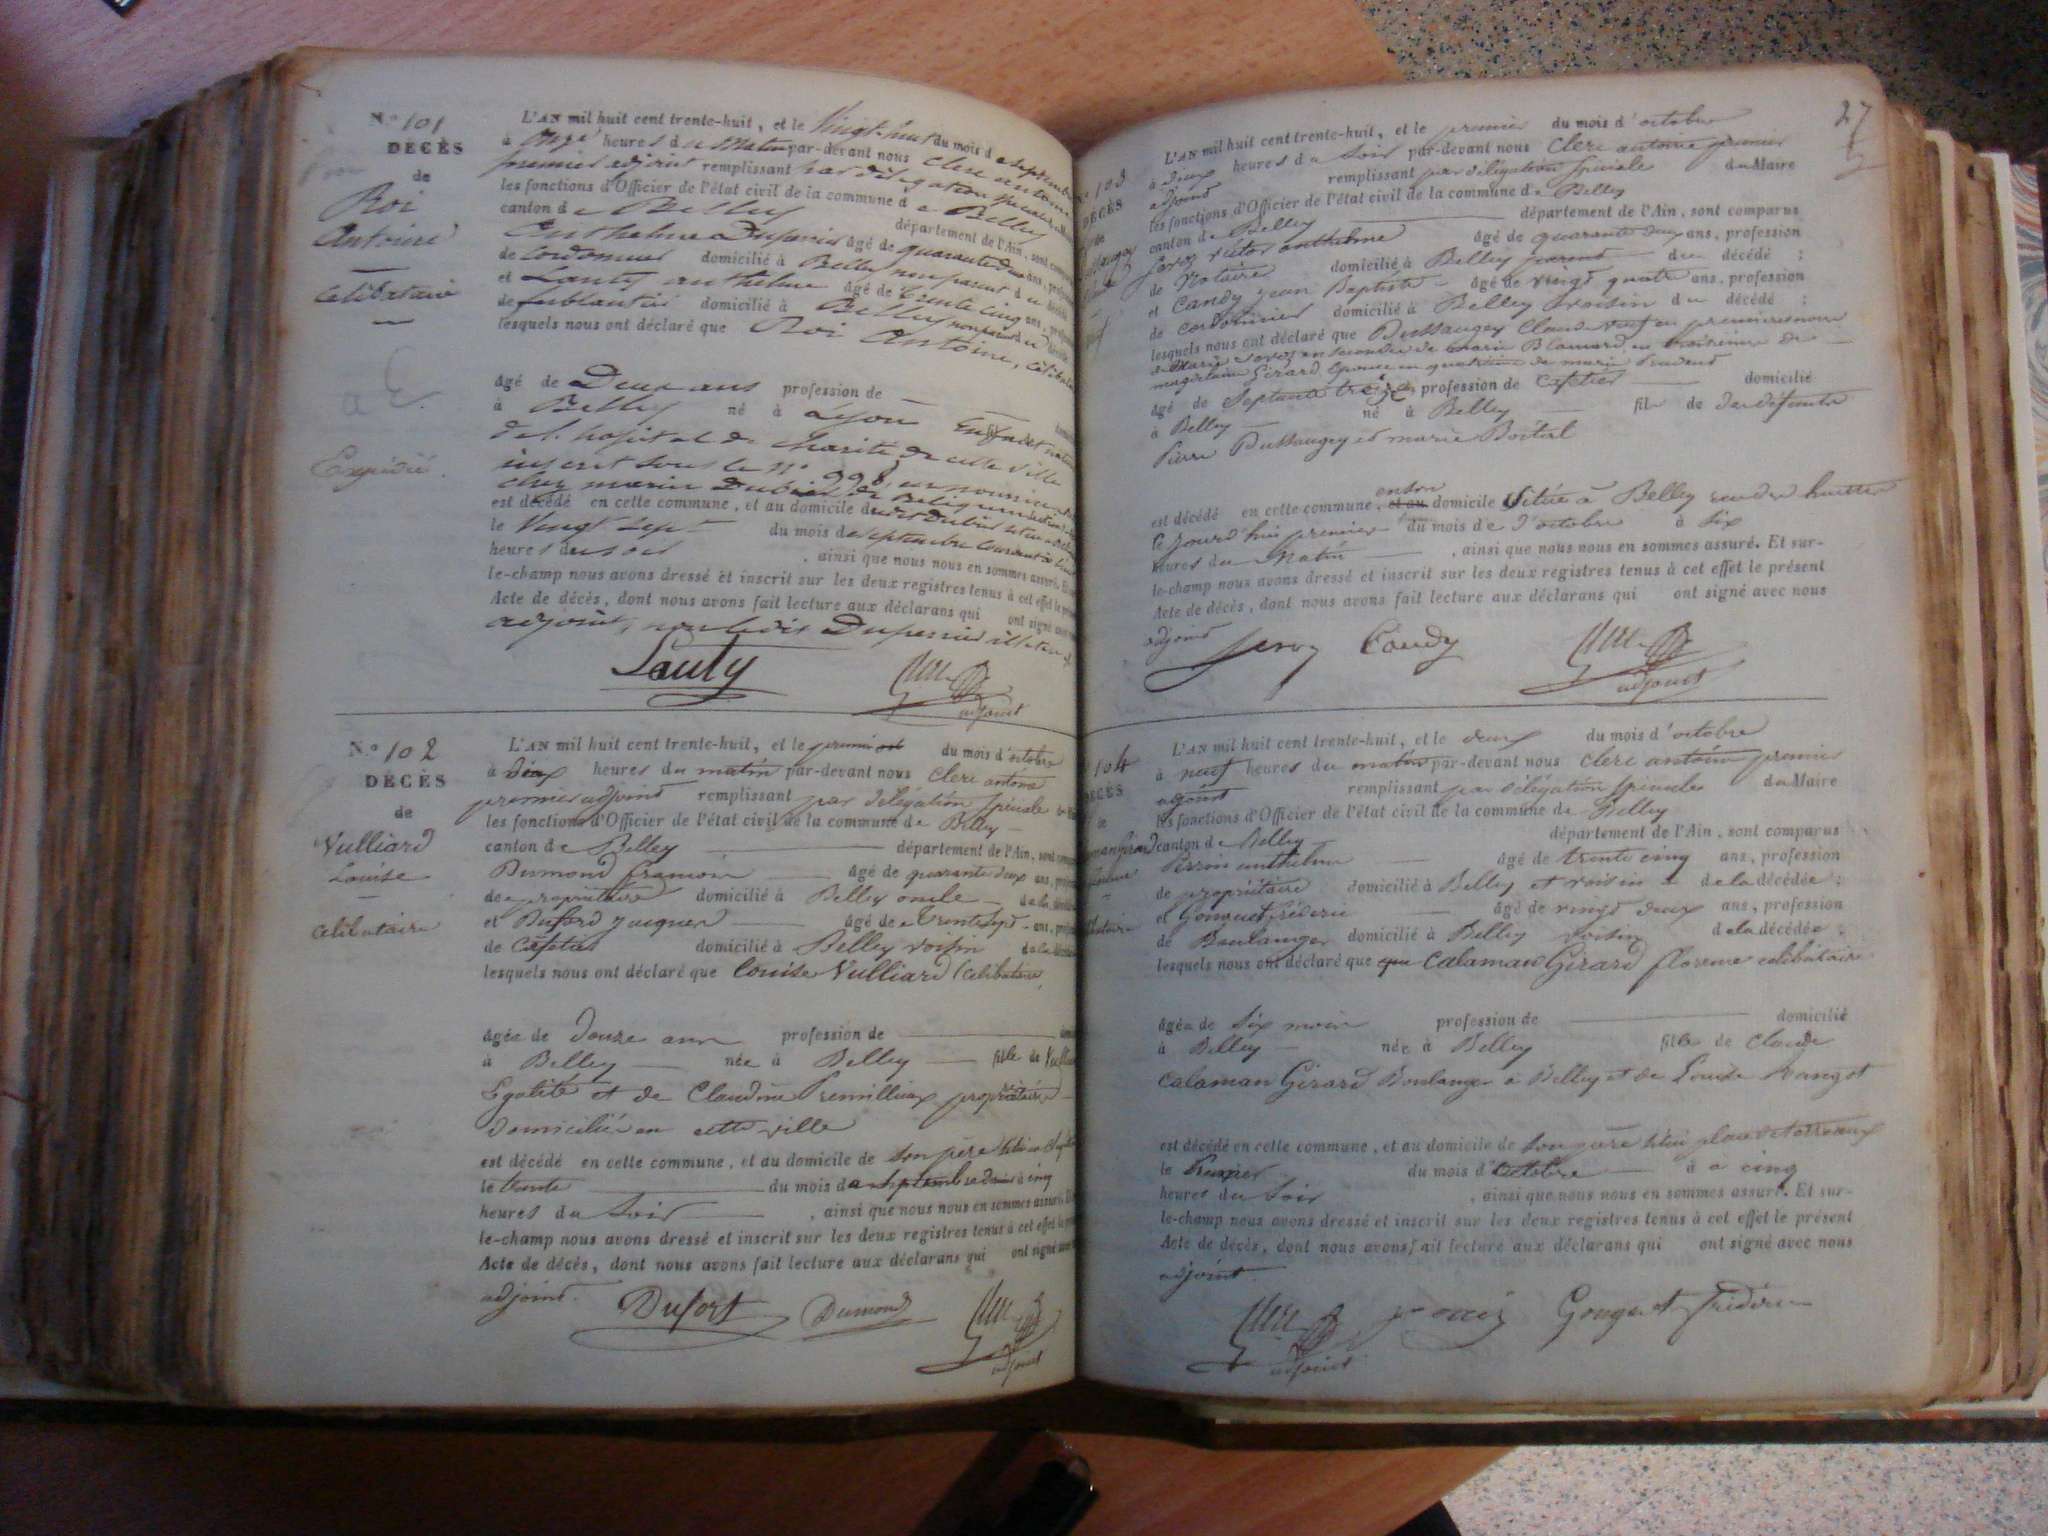 N.° 101
DÉCÈS
de
Roi
Antoine
célibataire
Expédié
L'AN mil huit cent trente-huit, et le Vingt-huit du mois de septembre
à onze heures du Matin par-devant nous Clerc antoine
premier adjoint remplissant par délégation spéciale
les fonctions d'Officier de l'état civil de la commune de Belley
canton de Belley département de l'Ain, sont
Anthelme Duperrier âgé de quarante deux ans, profes
de Cordonnier domicilié à Belley non parent du décédé
et Lanty anthelme âgé de trente cinq ans,
de ferblantier domicilié à Belley non parent du décédé
lesquels nous ont déclaré que Roi Antoine, céliba
âgé de Deux ans profession de
à Belley né à Lyon
de l'hopital de Charité de cette ville
inscrit sous le n.° 998, en nourrice
chez marie
est décédé en cette commune, et au domicile
le Vingt Sept du mois de septembre courant
heures du soir , ainsi que nous nous en sommes assuré. Et
le-champ nous avons dressé et inscrit sur les deux registres tenus à cet effet le
Acte de décès, dont nous avons fait lecture aux déclarans qui ont signé avec
adjoint, non ledit Duperrier illetéré
Lanty
adjoint
N.° 102
DÉCÈS
de
Vulliard
Louise
célibataire
L'AN mil huit cent trente-huit, et le premier du mois d'octobre
à dix heures du matin par-devant nous Clerc antoine
premier adjoint remplissant par délégation spéciale
les fonctions d'Officier de l'état civil de la commune de Belley
canton de Belley département de l'Ain, sont
Dumond françois âgé de quarante deux ans, profes
de propriétaire domicilié à Belley oncle de la
et Duford jacques âgé de trente sept ans,
de Cafetier domicilié à Belley voisin de la
lesquels nous ont déclaré que Louise Vulliard célibataire,
âgée de douze ans profession de
à Belley née à Belley fille de
Egalité et de Claudine Premillieux propriétaire
domiciliés en cette ville
est décédé en cette commune, et au domicile de son père
le trente du mois de septembre dernier à cinq
heures du Soir , ainsi que nous nous en sommes assuré.
le-champ nous avons dressé et inscrit sur les deux registres tenus à cet effet le
Acte de décès, dont nous avons fait lecture aux déclarans qui ont signé
adjoint.
Dufort Dumond
adjoint
27
103
DÉCÈS
L'AN mil huit cent trente-huit, et le premier du mois d'octobre
à deux heures du Soir par-devant nous Clerc antoine premier
adjoint remplissant par délégation spéciale du Maire
les fonctions d'Officier de l'état civil de la commune de Belley
canton de Belley département de l'Ain, sont comparus
victor anthelme âgé de quarante deux ans, profession
de Notaire domicilié à Belley parent du décédé ;
et Candy jean Baptiste âgé de vingt quatre ans, profession
de cordonnier domicilié à Belley voisin du décédé ;
lesquels nous ont déclaré que Dussaugey Claude veuf en premieres noces
de Marie en secondes de marie en troisieme de
Girard, Epoux en quatrieme de marie
âgé de Septante treize, profession de Cafetier domicilié
à Belley né à Belley fils de des défunts
Pierre Dussaugey et marie
est décédé en cette commune, et au en son domicile Situé à Belley
le jourd'hui premier du mois de d'octobre à Six
heures du Matin , ainsi que nous nous en sommes assuré. Et sur-
le-champ nous avons dressé et inscrit sur les deux registres tenus à cet effet le présent
Acte de décès, dont nous avons fait lecture aux déclarans qui ont signé avec nous
adjoint
Candy
adjoint
104
DÉCÈS
de
L'AN mil huit cent trente-huit, et le deux du mois d'octobre
à neuf heures du matin par-devant nous Clerc antoine premier
adjoint remplissant par délégation spéciale du Maire
les fonctions d'Officier de l'état civil de la commune de Belley
canton de Belley département de l'Ain, sont comparus
Perrin anthelme âgé de trente cinq ans, profession
de propriétaire domicilié à Belley et voisin de la décédée ;
et Gonguet fréderic âgé de vingt deux ans, profession
de Boulanger domicilié à Belley voisin de la décédée ;
lesquels nous ont déclaré que que Calaman Girard florence celibataire
âgée de Six mois profession de domicilié
à Belley née à Belley fille de Claude
Calaman Girard Boulanger à Belley et de Louise
est décédé en cette commune, et au domicile de son père situé place des terreaux
le Premier du mois d'Octobre à à cinq
heures du Soir , ainsi que nous nous en sommes assuré. Et sur-
le-champ nous avons dressé et inscrit sur les deux registres tenus à cet effet le présent
Acte de décès, dont nous avons fait lecture aux déclarans qui ont signé avec nous
adjoint.
adjoint
Gonguet fréderic